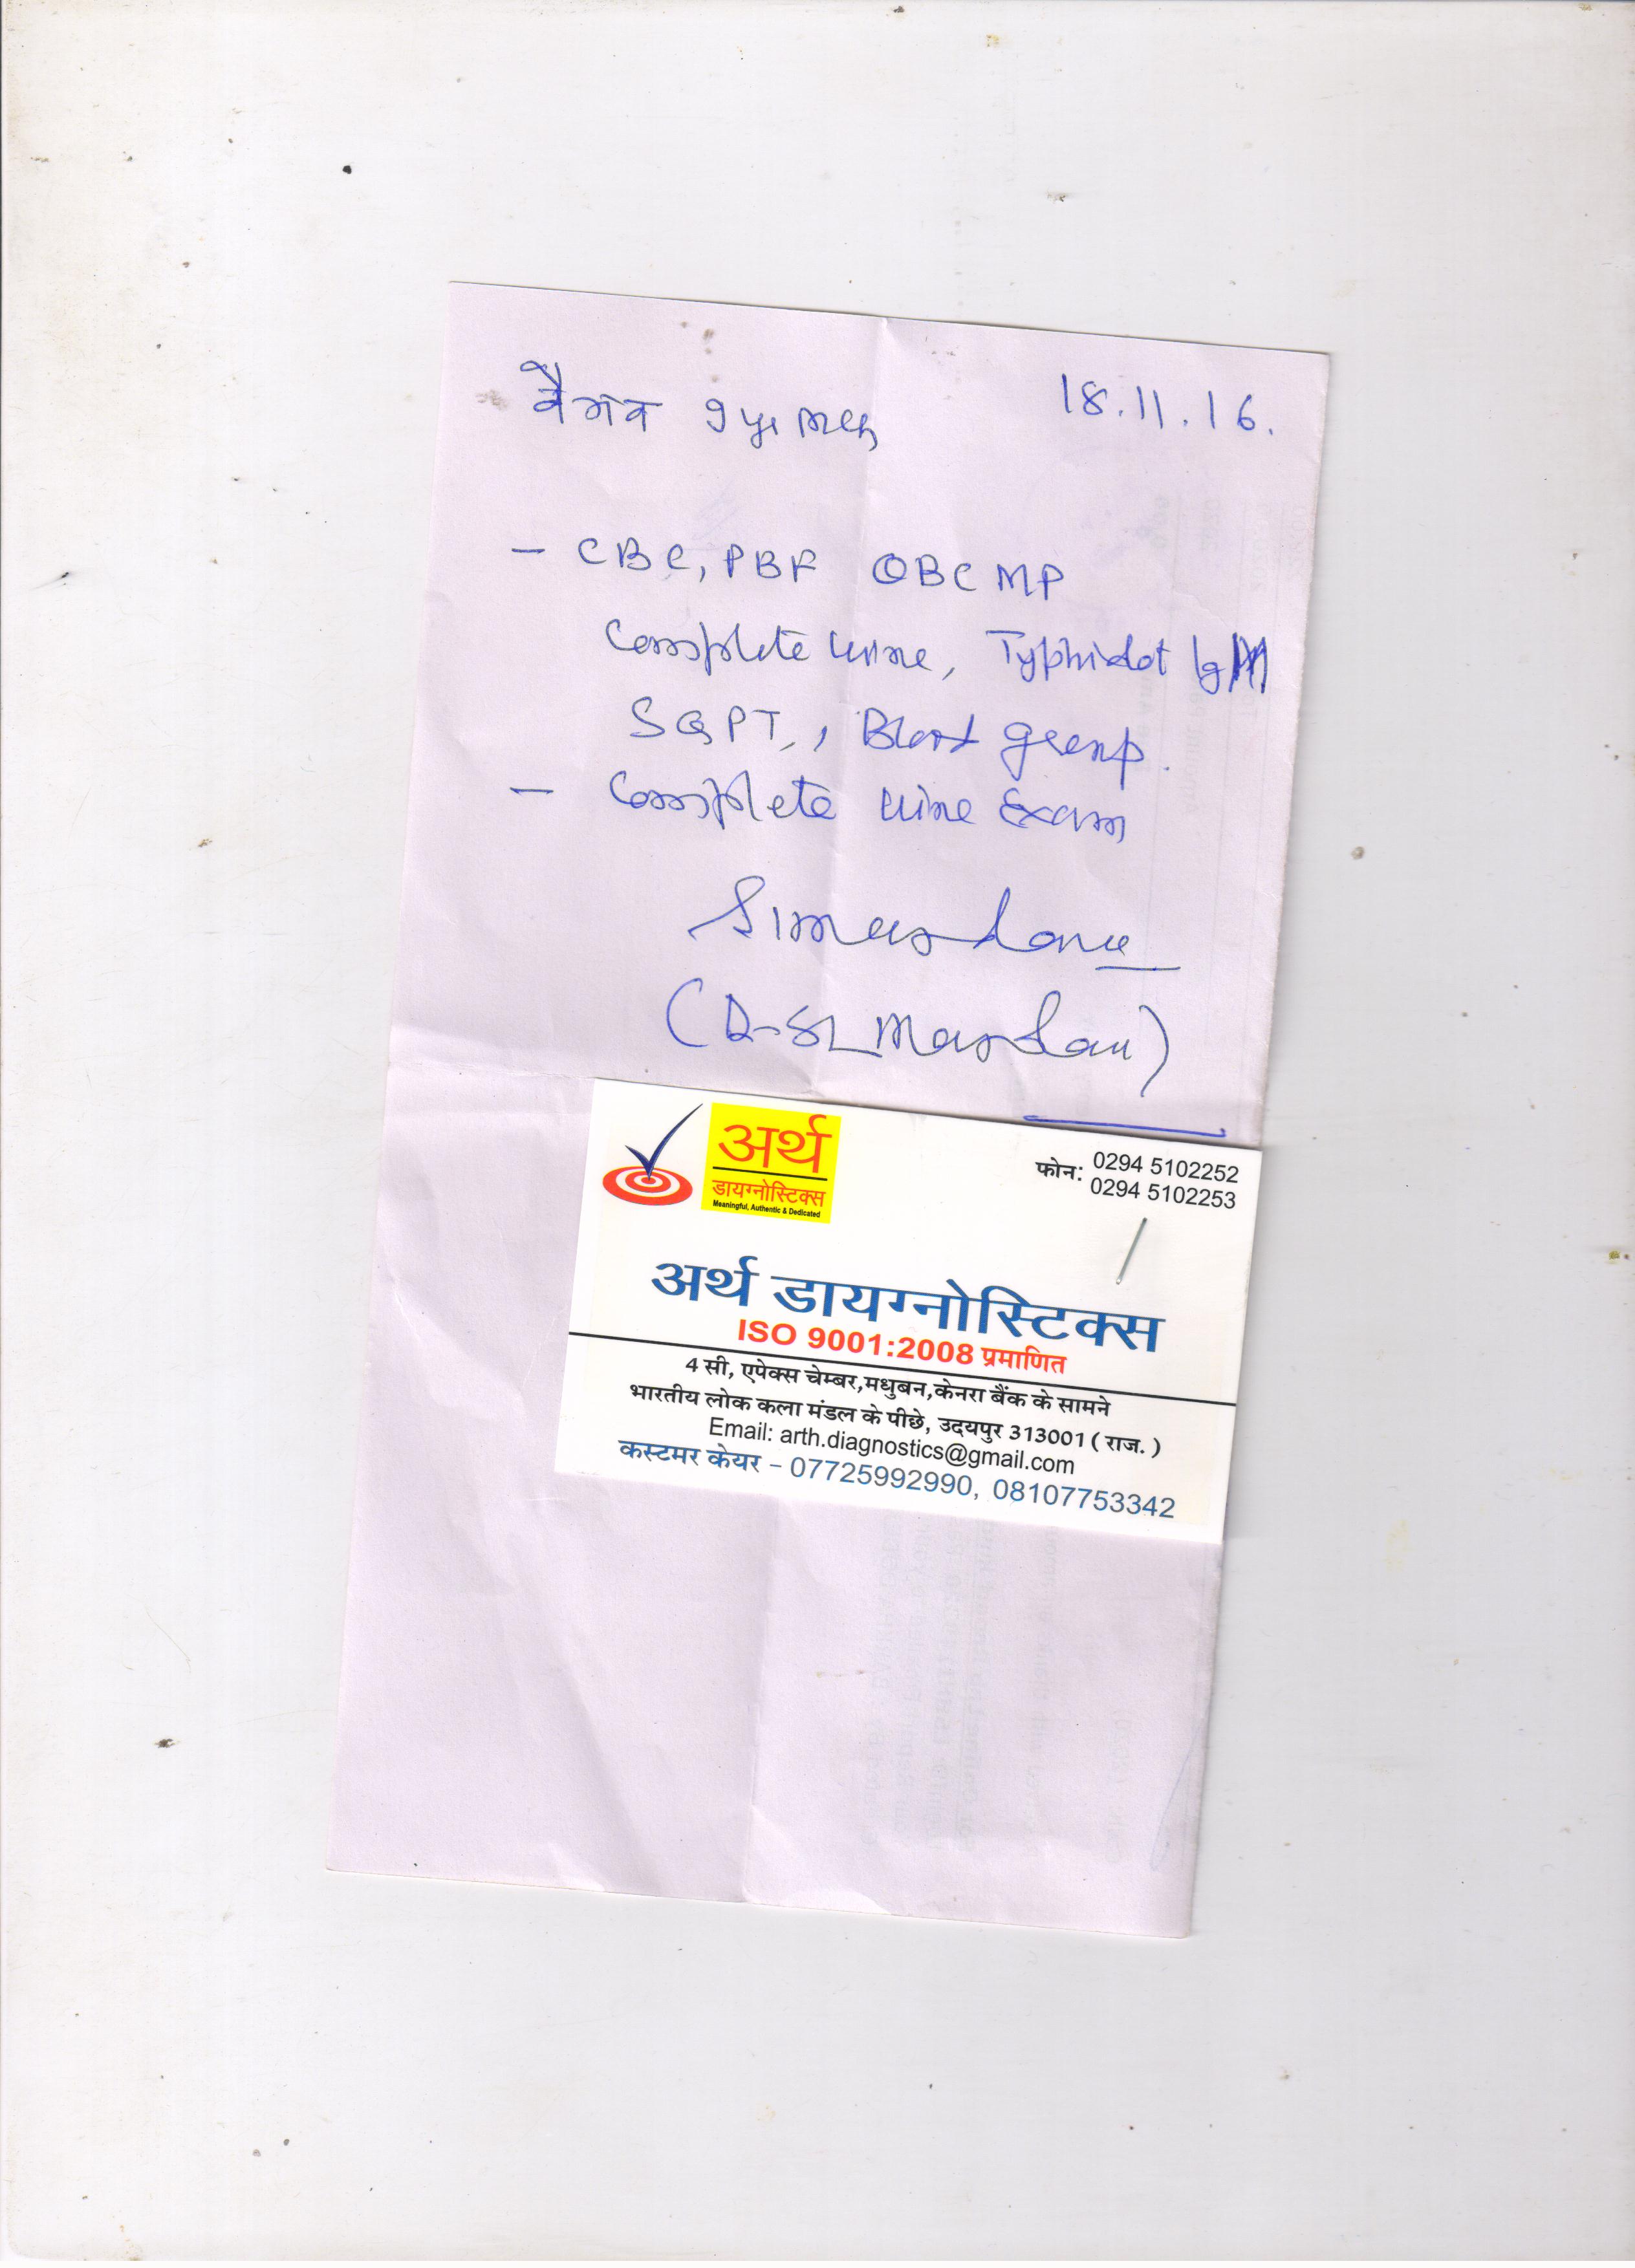 वैभव 9 yr male 18.11.16.
- CBC, PBF QBC MP
Complete urine, Typhidot IgM
SGPT, , Blood group.
- Complete urine Exam
(Dr SL
अर्थ
डायग्नोस्टिक्स
Meaningful, Authentic & Dedicated
फोन: 0294 5102252
0294 5102253
अर्थ डायग्नोस्टिक्स
ISO 9001:2008 प्रमाणित
4 सी, एपेक्स चेम्बर,मधुबन,केनरा बैंक के सामने
भारतीय लोक कला मंडल के पीछे, उदयपुर 313001 ( राज. )
Email: arth.diagnostics@gmail.com
कस्टमर केयर – 07725992990, 08107753342